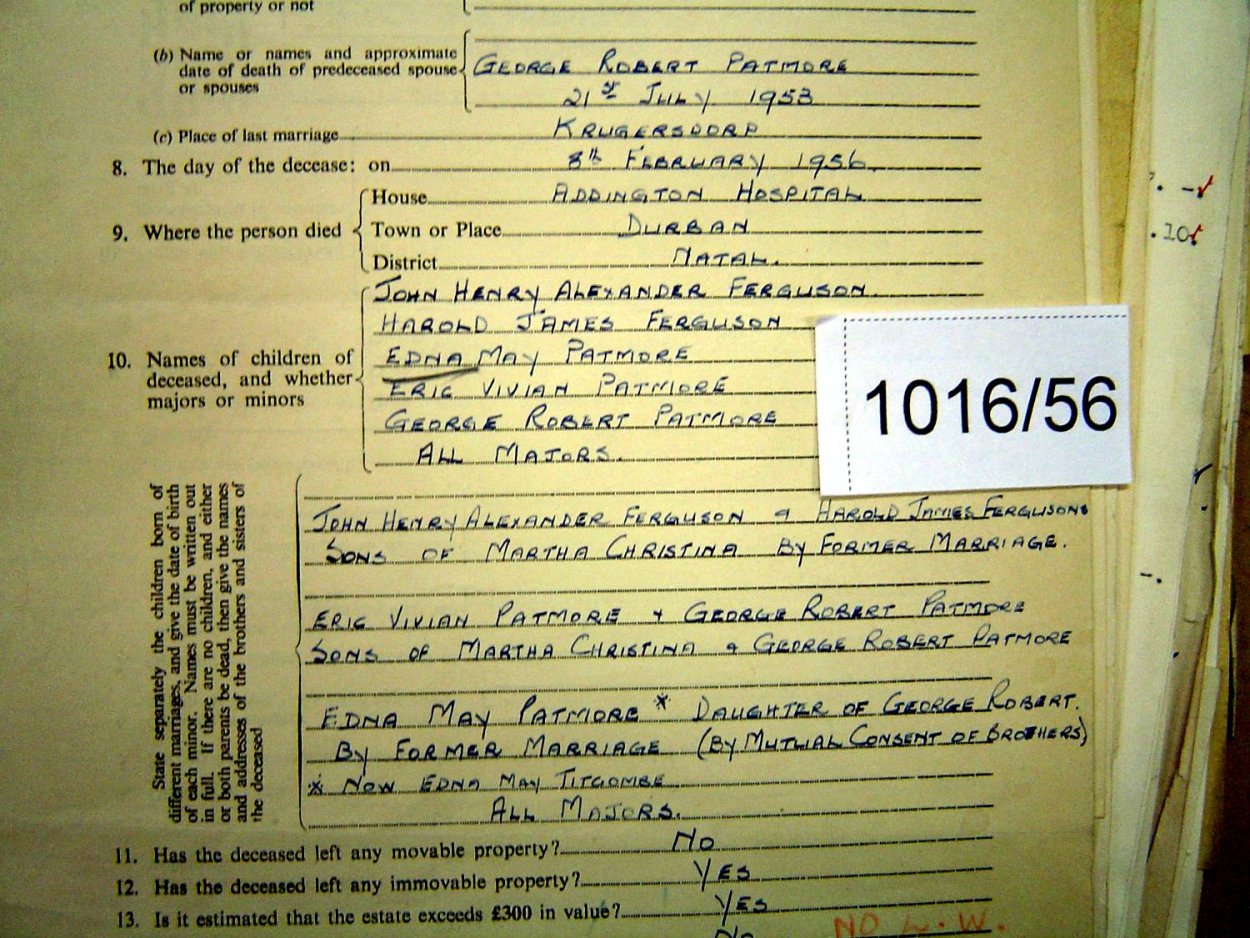 of property or not
(b) Name or names and approximate date of death of predeceased spouse or spouses
GEORGE ROBERT PATMORE
21st JULY 1953
(c) Place of last marriage KRUGERSDORP
8. The day of the decease: on 8th FEBRUARY 1956.
9. Where the person died
House ADDINGTON HOSPITAL
Town or Place DURBAN
District NATAL.
10. Names of children of deceased, and whether majors or minors
JOHN HENRY ALEXANDER FERGUSON.
HAROLD JAMES FERGUSON
EDNA MAY PATMORE
ERIC VIVIAN PATMORE
GEORGE ROBERT PATMORE
ALL MAJORS.
1016/56
State separately the children born of
different marriages, and give the date of birth
of each minor. Names must be written out
in full. If there are no children, and either
or both parents be dead, then give the names
and addresses of the brothers and sisters of
the deceased
JOHN HENRY ALEXANDER FERGUSON & HAROLD JAMES FERGUSONS
SONS OF MARTHA CHRISTINA BY FORMER MARRIAGE.
ERIC VIVIAN PATMORE & GEORGE ROBERT PATMORE
SONS OF MARTHA CHRISTINA & GEORGE ROBERT PATMORE
EDNA MAY PATMORE * DAUGHTER OF GEORGE ROBERT.
BY FORMER MARRIAGE (BY MUTUAL CONSENT OF BROTHERS)
* NOW EDNA MAY TITCOMBE
ALL MAJORS.
11. Has the deceased left any movable property? NO
12. Has the deceased left any immovable property? YES
13. Is it estimated that the estate exceeds £300 in value? YES
NO
NO L.W.